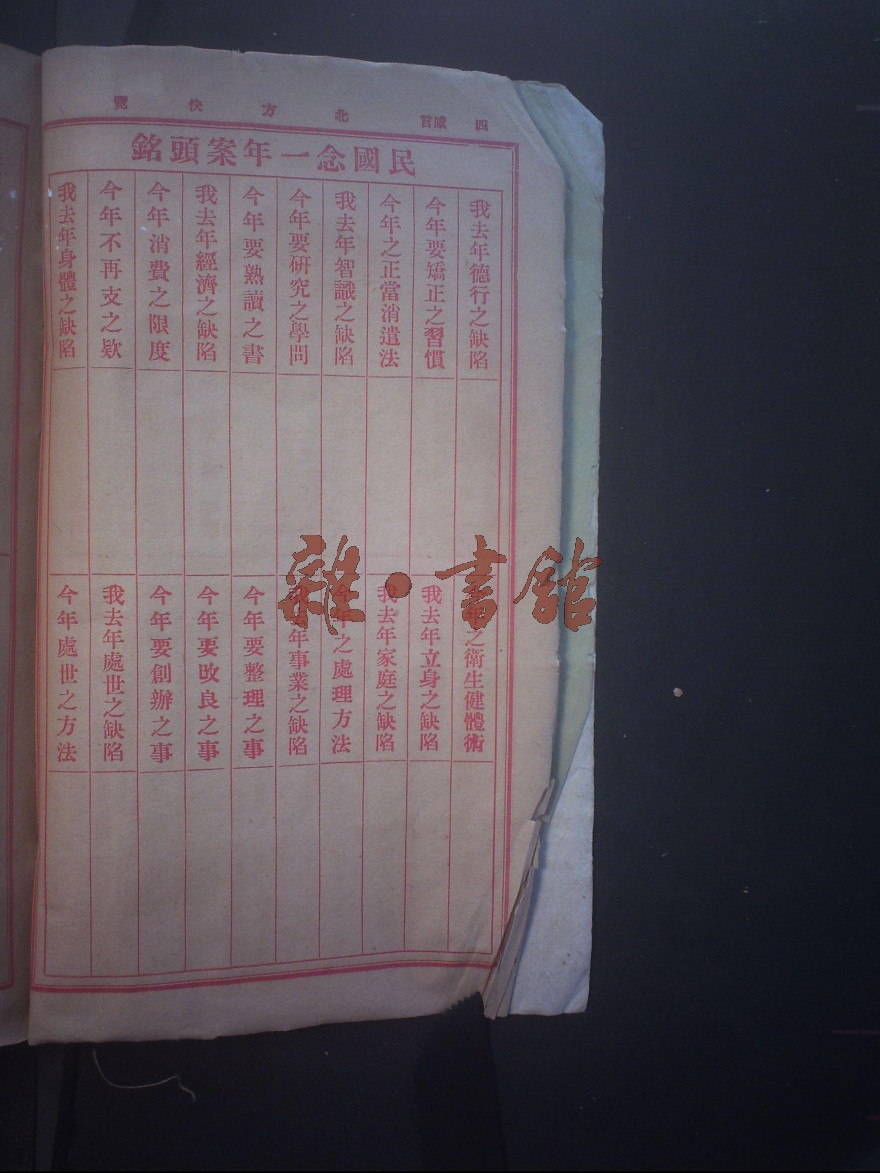 四 北方快覽
民國念一年案頭銘
我去年德行之缺陷
今年要矯正之習慣
今年之正當消遣法
我去年智識之缺陷
今年要研究之學問
今年要熟讀之書
我去年經濟之缺陷
今年消費之限度
今年不再支之欵
我去年身體之缺陷
之衛生健體術
我去年立身之缺陷
我去年家庭之缺陷
今年之處理方法
我去年事業之缺陷
今年要整理之事
今年要改良之事
今年要創辦之事
我去年處世之缺陷
今年處世之方法
雜·書館